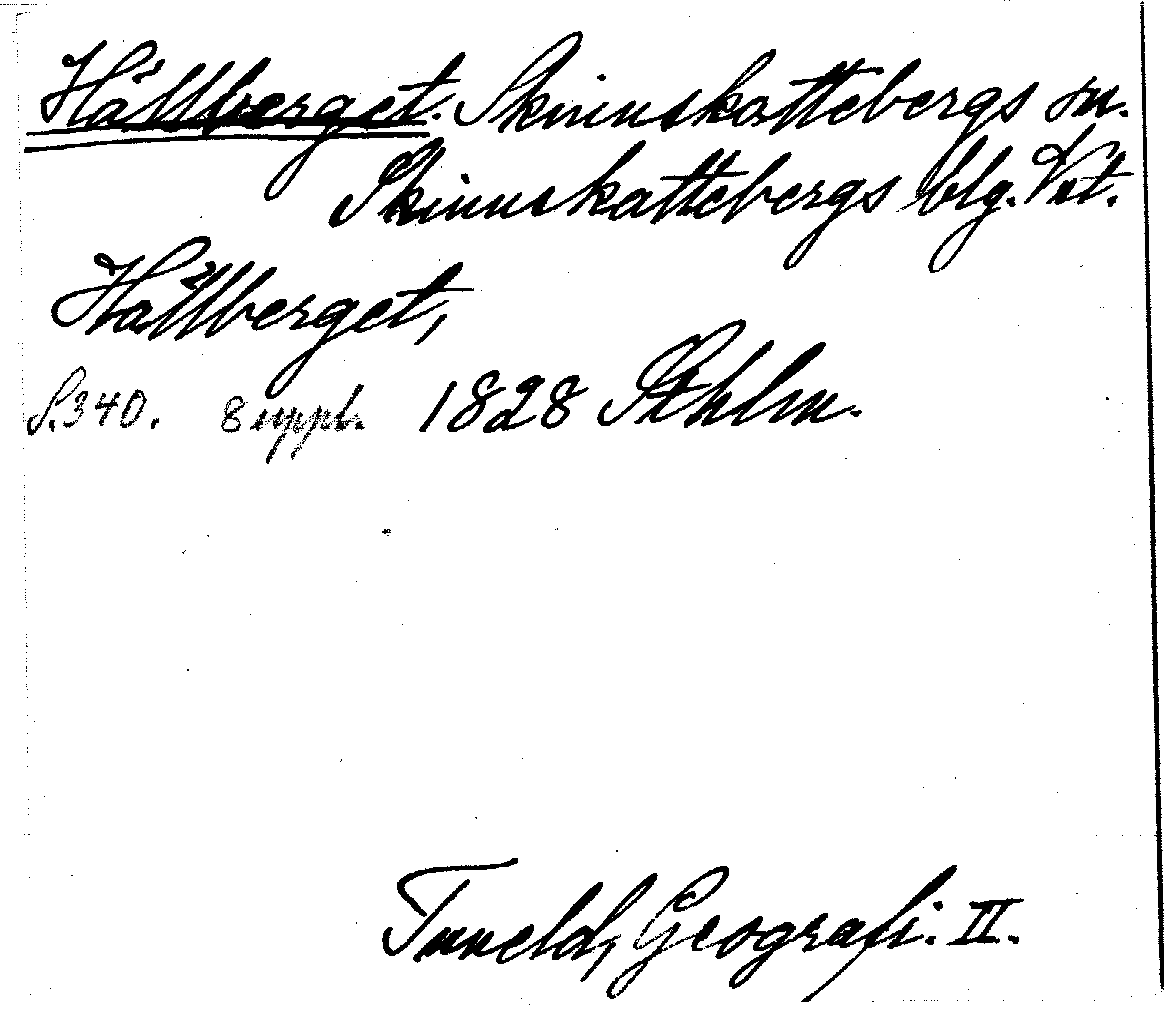 Hållberget. Skinnskattebergs sn.
Skinnskattebergs blg. Vst.
Hållberget,
S. 340. 8 uppl. 1828 Sthlm.
Tuneld, Geografi. II.